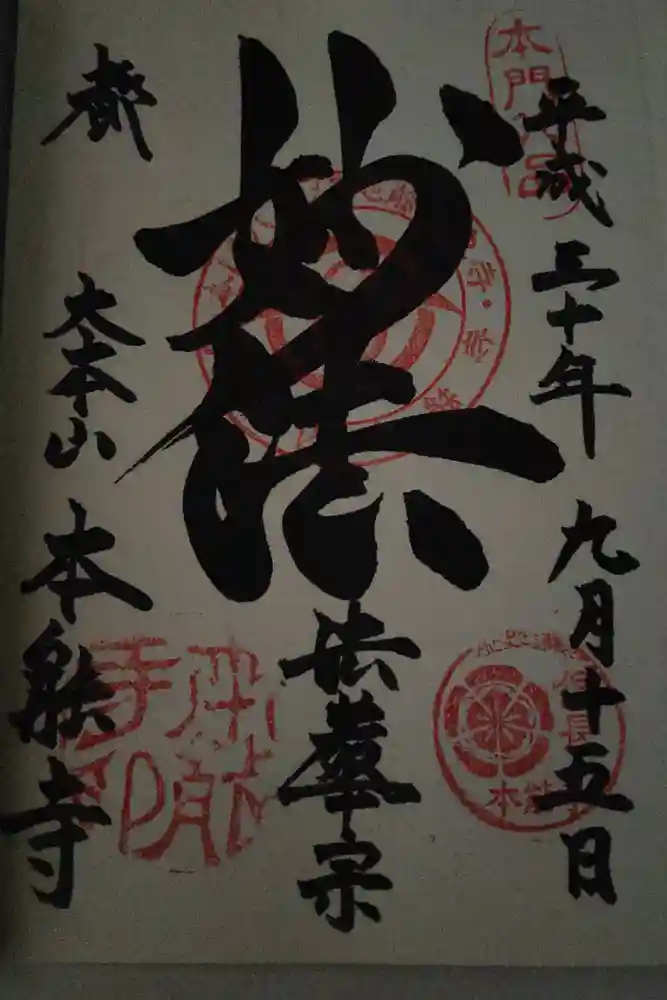 平成三十年九月十五日
妙法
法華宗
都
大本山
本能寺
本門